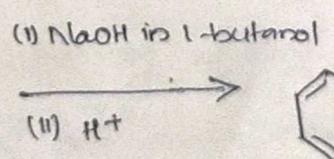 (i) NaOH in 1-butanol
(ii) H+